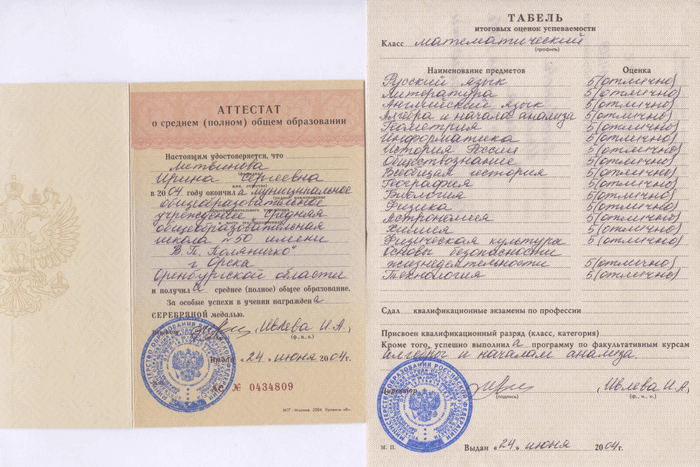 АТТЕСТАТ
о среднем (полном) общем образовании
Настоящим удостоверяется, что
Литвинова
Ирина Сергеевна
в 2004 году окончила муниципальное
общеобразовательное
учреждение средняя
общеобразовательная
школа №50 имени
В.П. Поляничко
г. Орска
Оренбургской области
и получила среднее (полное) общее образование.
За особые успехи в учении награждена
СЕРЕБРЯНОЙ медалью.
(Ивлева И.А.)
(ф., и., о.)
Выдан «24» июня 2004г.
№ 0434809
ТАБЕЛЬ
итоговых оценок успеваемости
Класс математический
(профиль)
Наименование предметов Оценка
Русский язык 5(отлично)
Литература 5(отлично)
Английский язык 5(отлично)
Алгебра и начала анализа 5(отлично)
Геометрия 5(отлично)
Информатика 5(отлично)
История России 5(отлично)
Обществознание 5(отлично)
Всеобщая история 5(отлично)
География 5(отлично)
Биология 5(отлично)
Физика 5(отлично)
Астрономия 5(отлично)
Химия 5(отлично)
Физическая культура 5(отлично)
Основы безопасности
жизнедеятельности 5(отлично)
Технология 5(отлично)
Сдал квалификационные экзамены по профессии
Присвоен квалификационный разряд (класс, категория)
Кроме того, успешно выполнила программу по факультативным курсам
алгебры и началам анализа.
Директор (Ивлева И.А.)
(подпись) (ф., и., о.)
М. П. Выдан «24» июня 2004